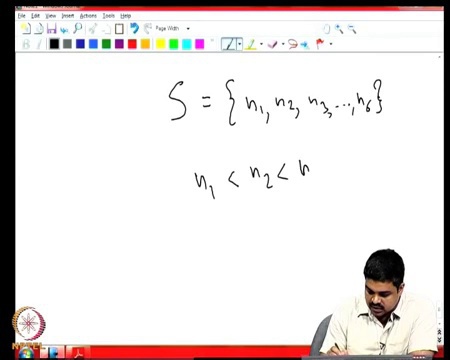 File Edit View Insert Actions Tools Help
Page Width
S = { n₁, n₂, n₃, ..., n₆ }
n₁ < n₂ < n